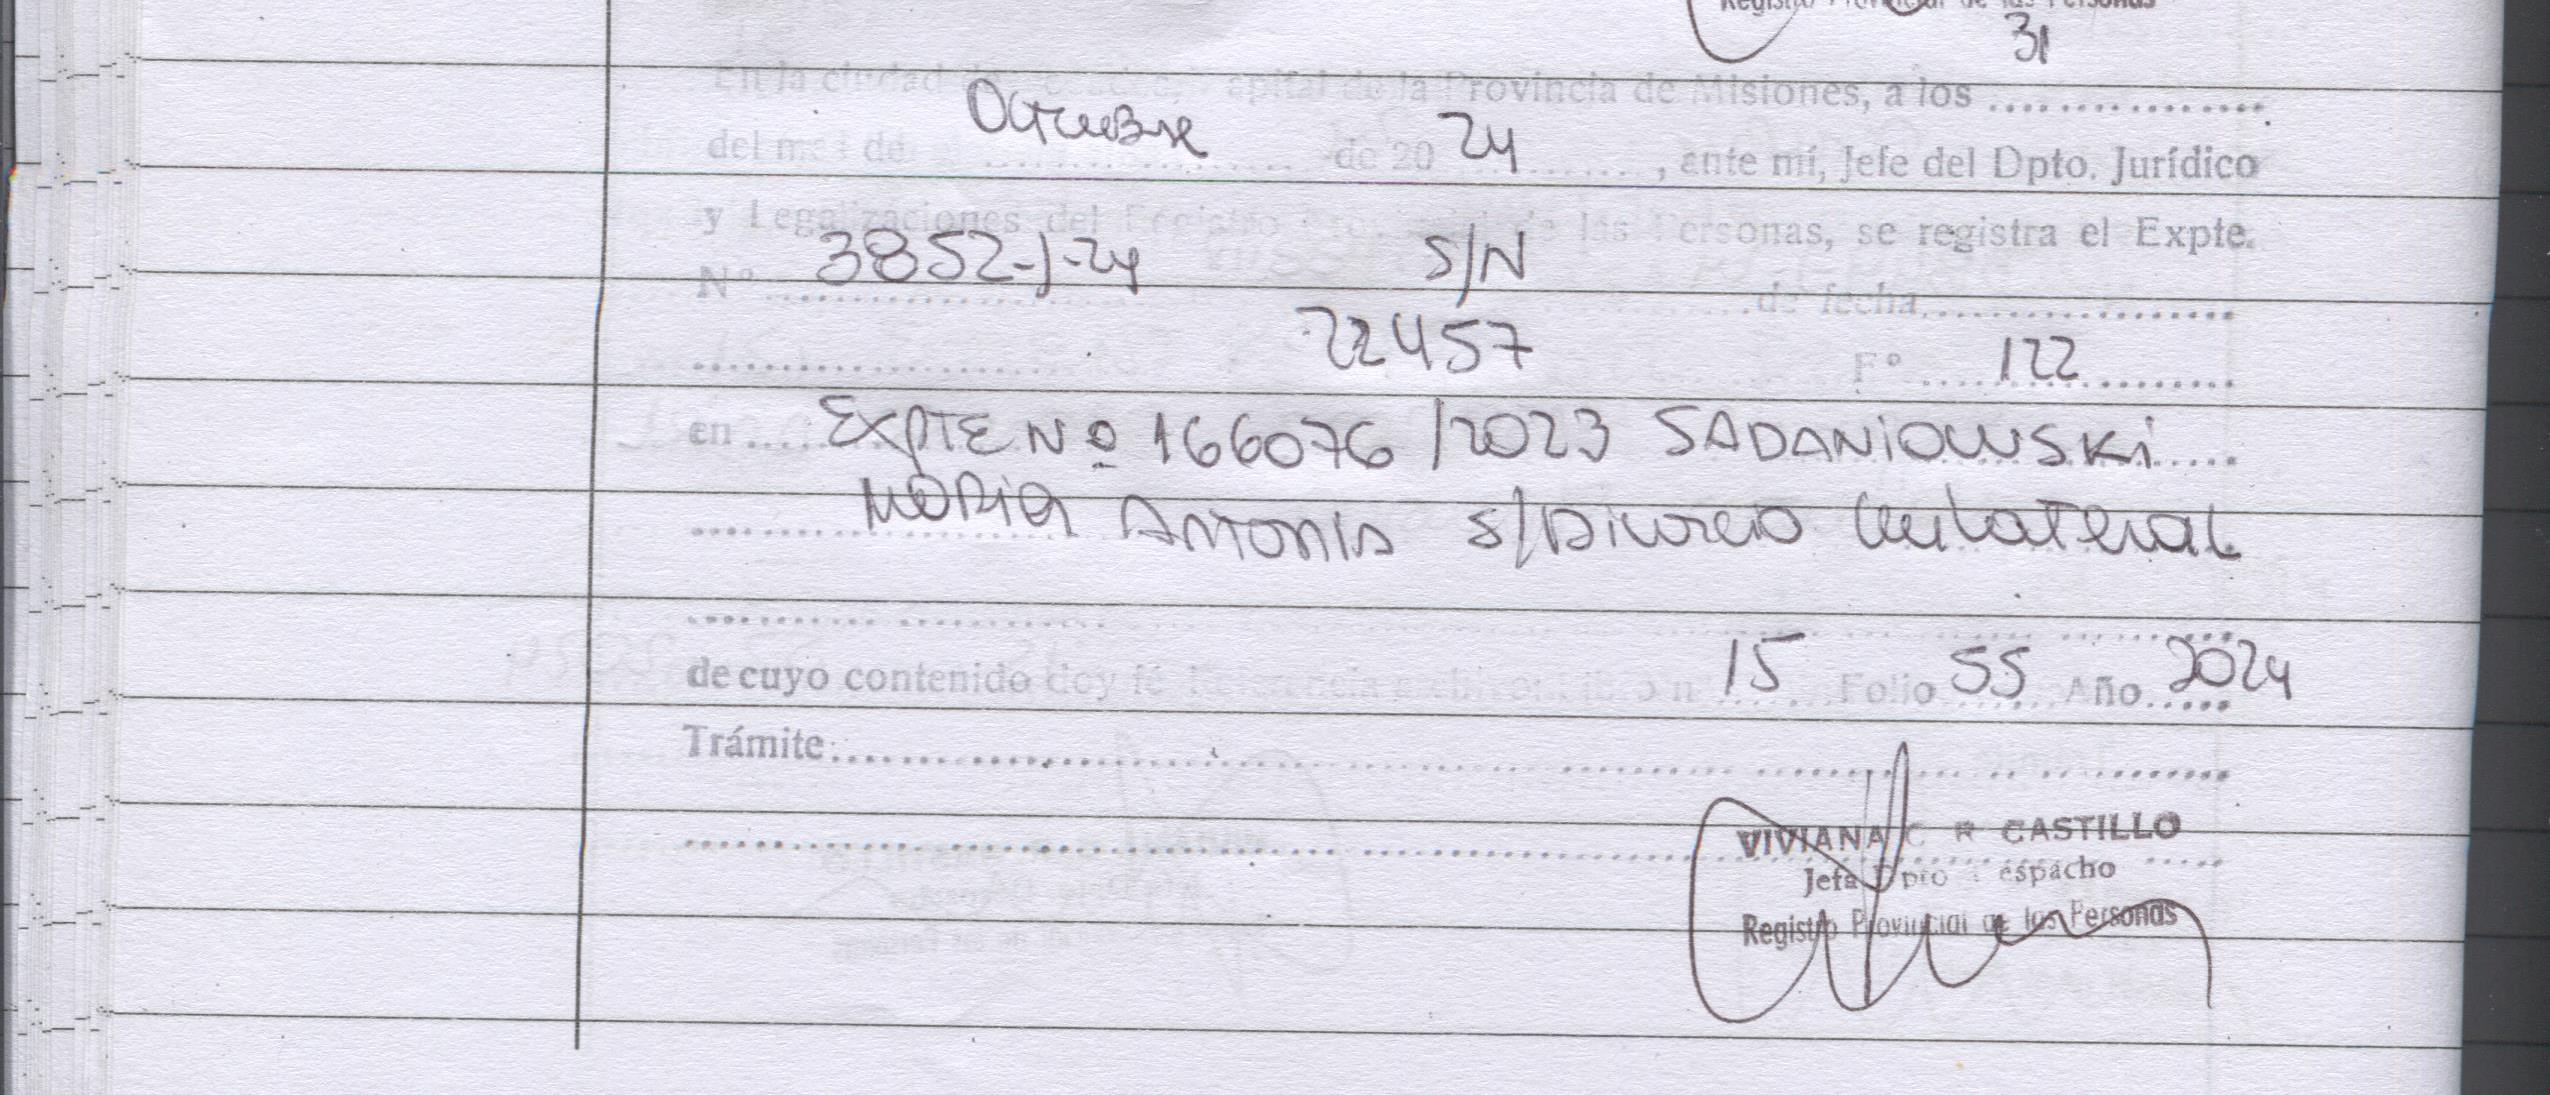 Registro Provincial de las Personas
31
En la ciudad de Posadas, Capital de la Provincia de Misiones, a los ................
Octubre 24
del mes de ................ de 20 ............, ante mí, Jefe del Dpto. Jurídico
y Legalizaciones del Registro Provincial de las Personas, se registra el Expte.
3852-J-24 S/N
N° ................ de fecha................
22457 F° 122
en EXPTE Nº 166076/2023 SADANIOWSKI
MARIA ANTONIA S/Divorcio Unilateral
de cuyo contenido doy fé 15 Folio 55 Año 2024
Trámite:................
VIVIANA C R CASTILLO
Jefa Dpto Despacho
Registro Provincial de las Personas